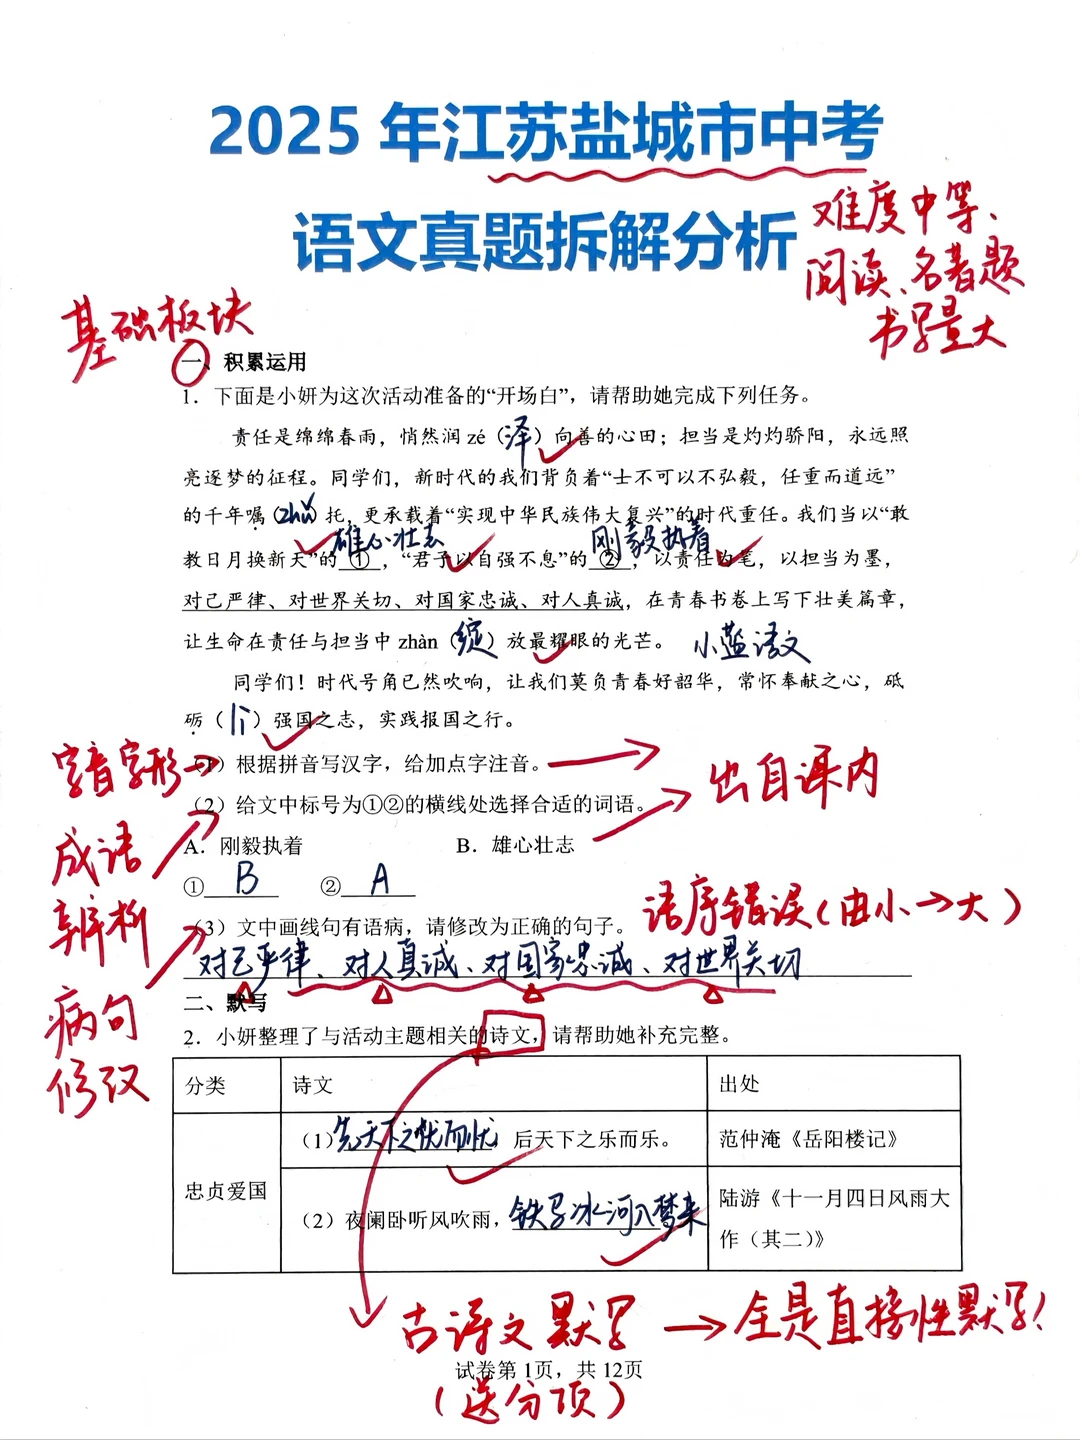 2025 年江苏盐城市中考
语文真题拆解分析
难度中等、
阅读、名著题
书写量大
基础板块
一、积累运用
1．下面是小妍为这次活动准备的“开场白”，请帮助她完成下列任务。
责任是绵绵春雨，悄然润 zé（泽）向善的心田；担当是灼灼骄阳，永远照
亮逐梦的征程。同学们，新时代的我们背负着“士不可以不弘毅，任重而道远”
的千年嘱（zhǔ）托，更承载着“实现中华民族伟大复兴”的时代重任。我们当以“敢
雄心壮志
刚毅执着
教日月换新天”的①，“君子以自强不息”的②，以责任为笔，以担当为墨，
对己严律、对世界关切、对国家忠诚、对人真诚，在青春书卷上写下壮美篇章，
让生命在责任与担当中 zhàn（绽）放最耀眼的光芒。
小蓝语文
同学们！时代号角已然吹响，让我们莫负青春好韶华，常怀奉献之心，砥
砺（lì）强国之志，实践报国之行。
字音字形
（1）根据拼音写汉字，给加点字注音。
出自课内
（2）给文中标号为①②的横线处选择合适的词语。
成语
辨析
A．刚毅执着 B．雄心壮志
① B ② A
（3）文中画线句有语病，请修改为正确的句子。
语序错误（由小→大）
对己严律、对人真诚、对国家忠诚、对世界关切
病句
修改
二、默写
2．小妍整理了与活动主题相关的诗文，请帮助她补充完整。
分类 诗文 出处
忠贞爱国
（1）先天下之忧而忧，后天下之乐而乐。 范仲淹《岳阳楼记》
（2）夜阑卧听风吹雨，铁马冰河入梦来 陆游《十一月四日风雨大
作（其二）》
古诗文默写 → 全是直接性默写！
试卷第 1页，共 12页
（送分项）